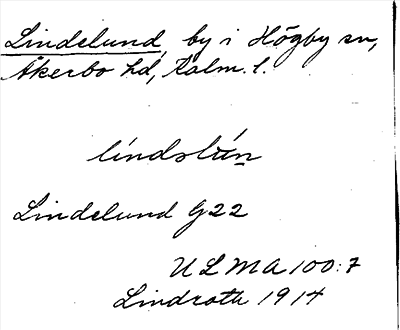 Lindelund, by i Högby sn,
Åkerbo hd, Kalm. l.
líndslún
Lindelund G22
ULMA 100:7
Lindroth 1914